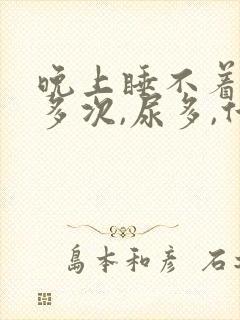 晚上睡不着
多次,尿多,什
島本和彦 石